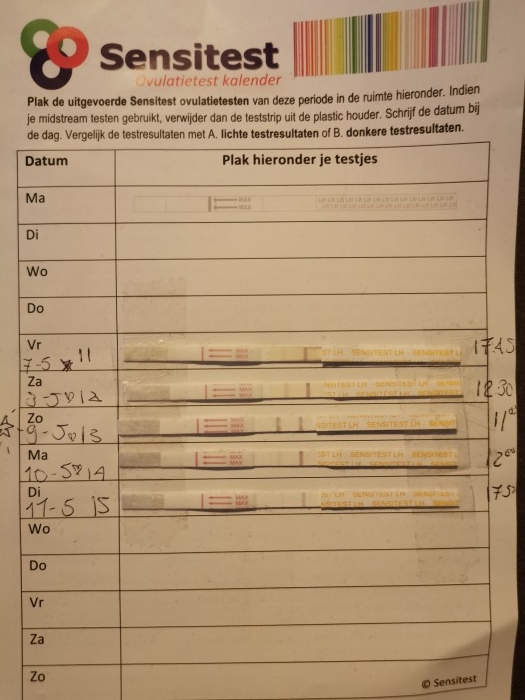 Sensitest
Ovulatietest kalender
Plak de uitgevoerde Sensitest ovulatietesten van deze periode in de ruimte hieronder. Indien
je midstream testen gebruikt, verwijder dan de teststrip uit de plastic houder. Schrijf de datum bij
de dag. Vergelijk de testresultaten met A. lichte testresultaten of B. donkere testresultaten.
Datum Plak hieronder je testjes
Ma MAX
MAX
Di
Wo
Do
Vr
7-5 11 MAX MAX ST LH SENSITEST LH SENSITEST L 1745
Za
12 MAX MAX NSITEST LH SENSITEST LH SENSITEST 1230
Zo
9-5 13 MAX MAX NSITEST LH SENSITEST LH SENSITEST 11
Ma
10-5 14 MAX MAX ST LH SENSITEST LH SENSITEST L 12
Di
11-5 15 MAX MAX ST LH SENSITEST LH SENSIT 175
SITEST LH SENSITEST LH SENSI
Wo
Do
Vr
Za
Zo
© Sensitest